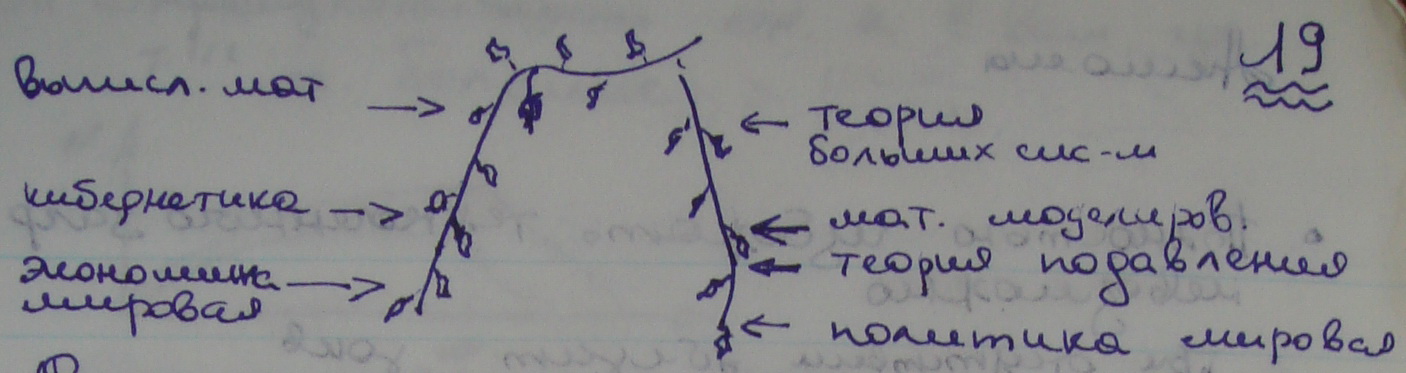 19
вычисл. мат
теория
больших сис-м
кибернетика
мат. моделиров.
экономика
мировая
теория подавления
политика мировая